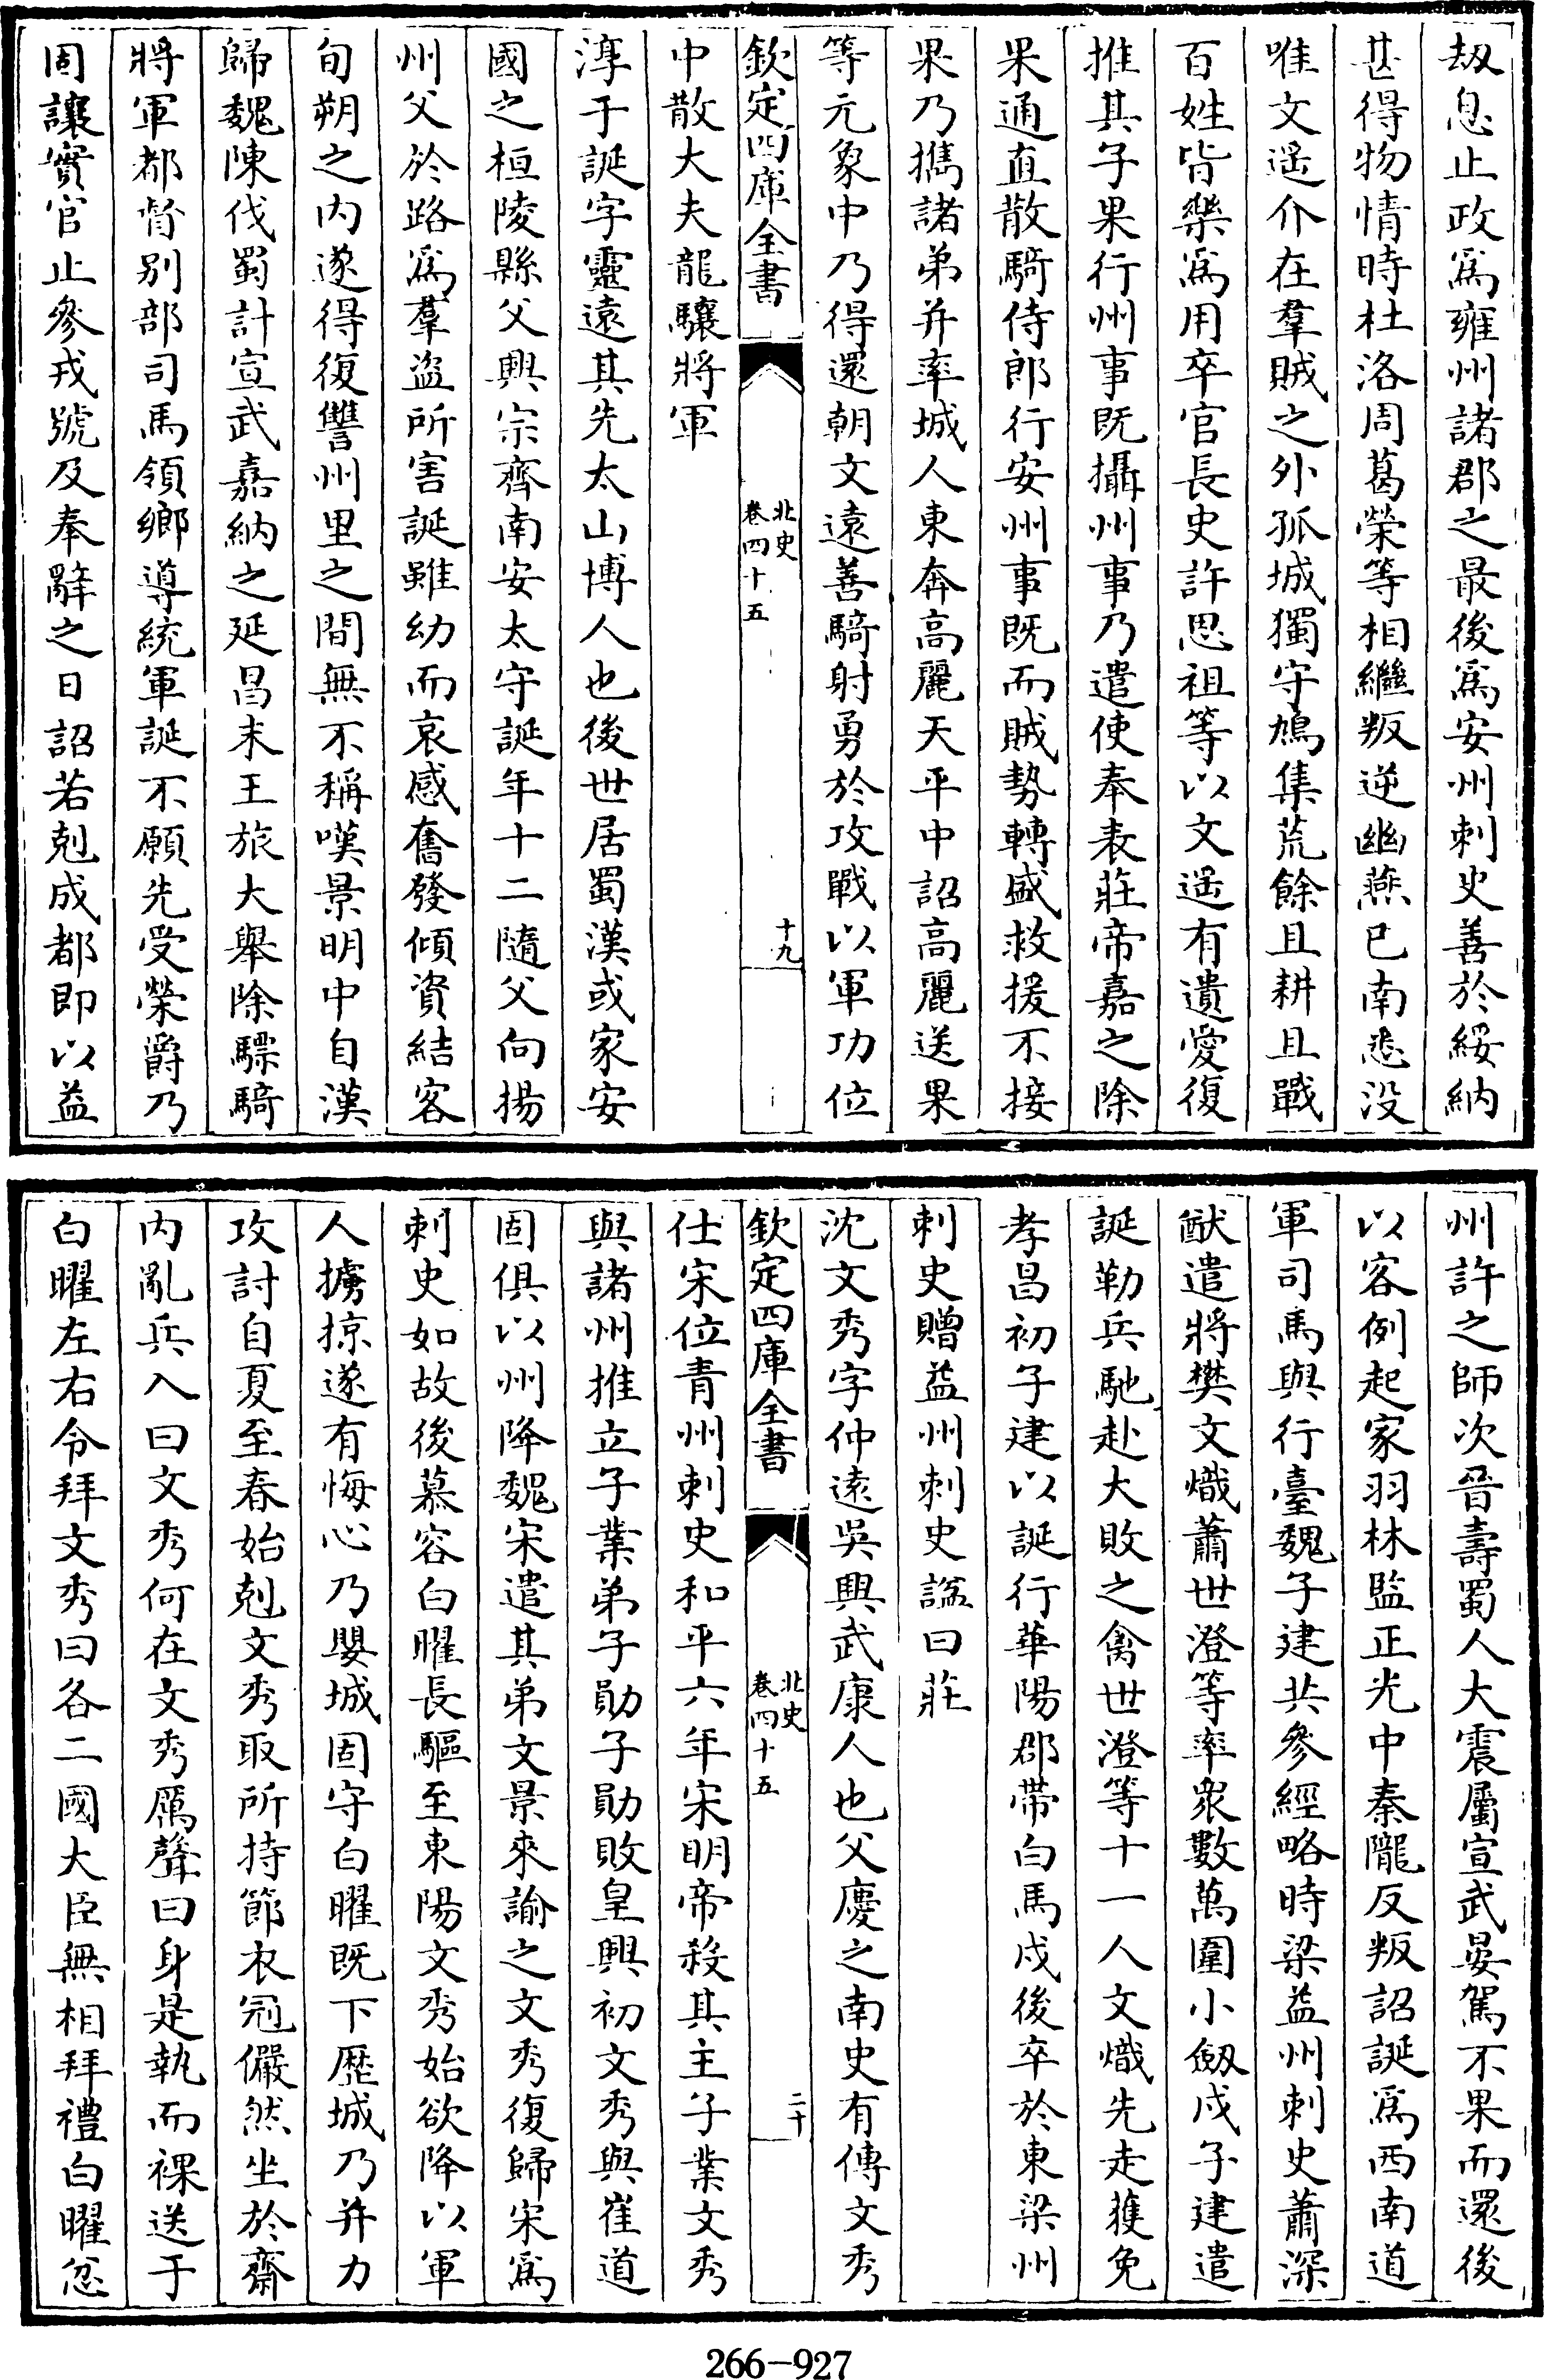 劫息止政爲雍州諸郡之最後爲安州刺史善於綏納
甚得物情時杜洛周葛榮等相繼叛逆幽燕已南悉没
唯文遥介在羣賊之外孤城獨守鳩集荒餘且耕且戰
百姓皆樂爲用卒官長史許思祖等以文遥有遺愛復
推其子果行州事既攝州事乃遣使奉表莊帝嘉之除
果通直散騎侍郎行安州事既而賊勢轉盛救援不接
果乃攜諸弟并率城人東奔高麗天平中詔高麗送果
等元象中乃得還朝文遠善騎射勇於攻戰以軍功位
欽定四庫全書
北史
卷四十五
十九
中散大夫龍驤將軍
淳于誕字靈遠其先太山博人也後世居蜀漢或家安
國之桓陵縣父興宗齊南安太守誕年十二隨父向揚
州父於路爲羣盜所害誕雖幼而哀感奮發傾資結客
旬朔之内遂得復讐州里之間無不稱嘆景明中自漢
歸魏陳伐蜀計宣武嘉納之延昌末王旅大舉除驃騎
將軍都督别部司馬領鄉導統軍誕不願先受榮爵乃
固讓實官止參戎號及奉辭之日詔若剋成都即以益
州許之師次晉壽蜀人大震屬宣武晏駕不果而還後
以客例起家羽林監正光中秦隴反叛詔誕爲西南道
軍司馬與行臺魏子建共參經略時梁益州刺史蕭深
猷遣將樊文熾蕭世澄等率衆數萬圍小劔戍子建遣
誕勒兵馳赴大敗之禽世澄等十一人文熾先走獲免
孝昌初子建以誕行華陽郡帶白馬戍後卒於東梁州
刺史贈益州刺史諡曰莊
沈文秀字仲遠吳興武康人也父慶之南史有傳文秀
欽定四庫全書
北史
卷四十五
二十
仕宋位青州刺史和平六年宋明帝殺其主子業文秀
與諸州推立子業弟子勛子勛敗皇興初文秀與崔道
固俱以州降魏宋遣其弟文景來諭之文秀復歸宋爲
刺史如故後慕容白曜長驅至東陽文秀始欲降以軍
人擄掠遂有悔心乃嬰城固守白曜既下歷城乃并力
攻討自夏至春始剋文秀取所持節衣冠儼然坐於齋
内亂兵入曰文秀何在文秀厲聲曰身是執而裸送于
白曜左右令拜文秀曰各二國大臣無相拜禮白曜忿
266-927